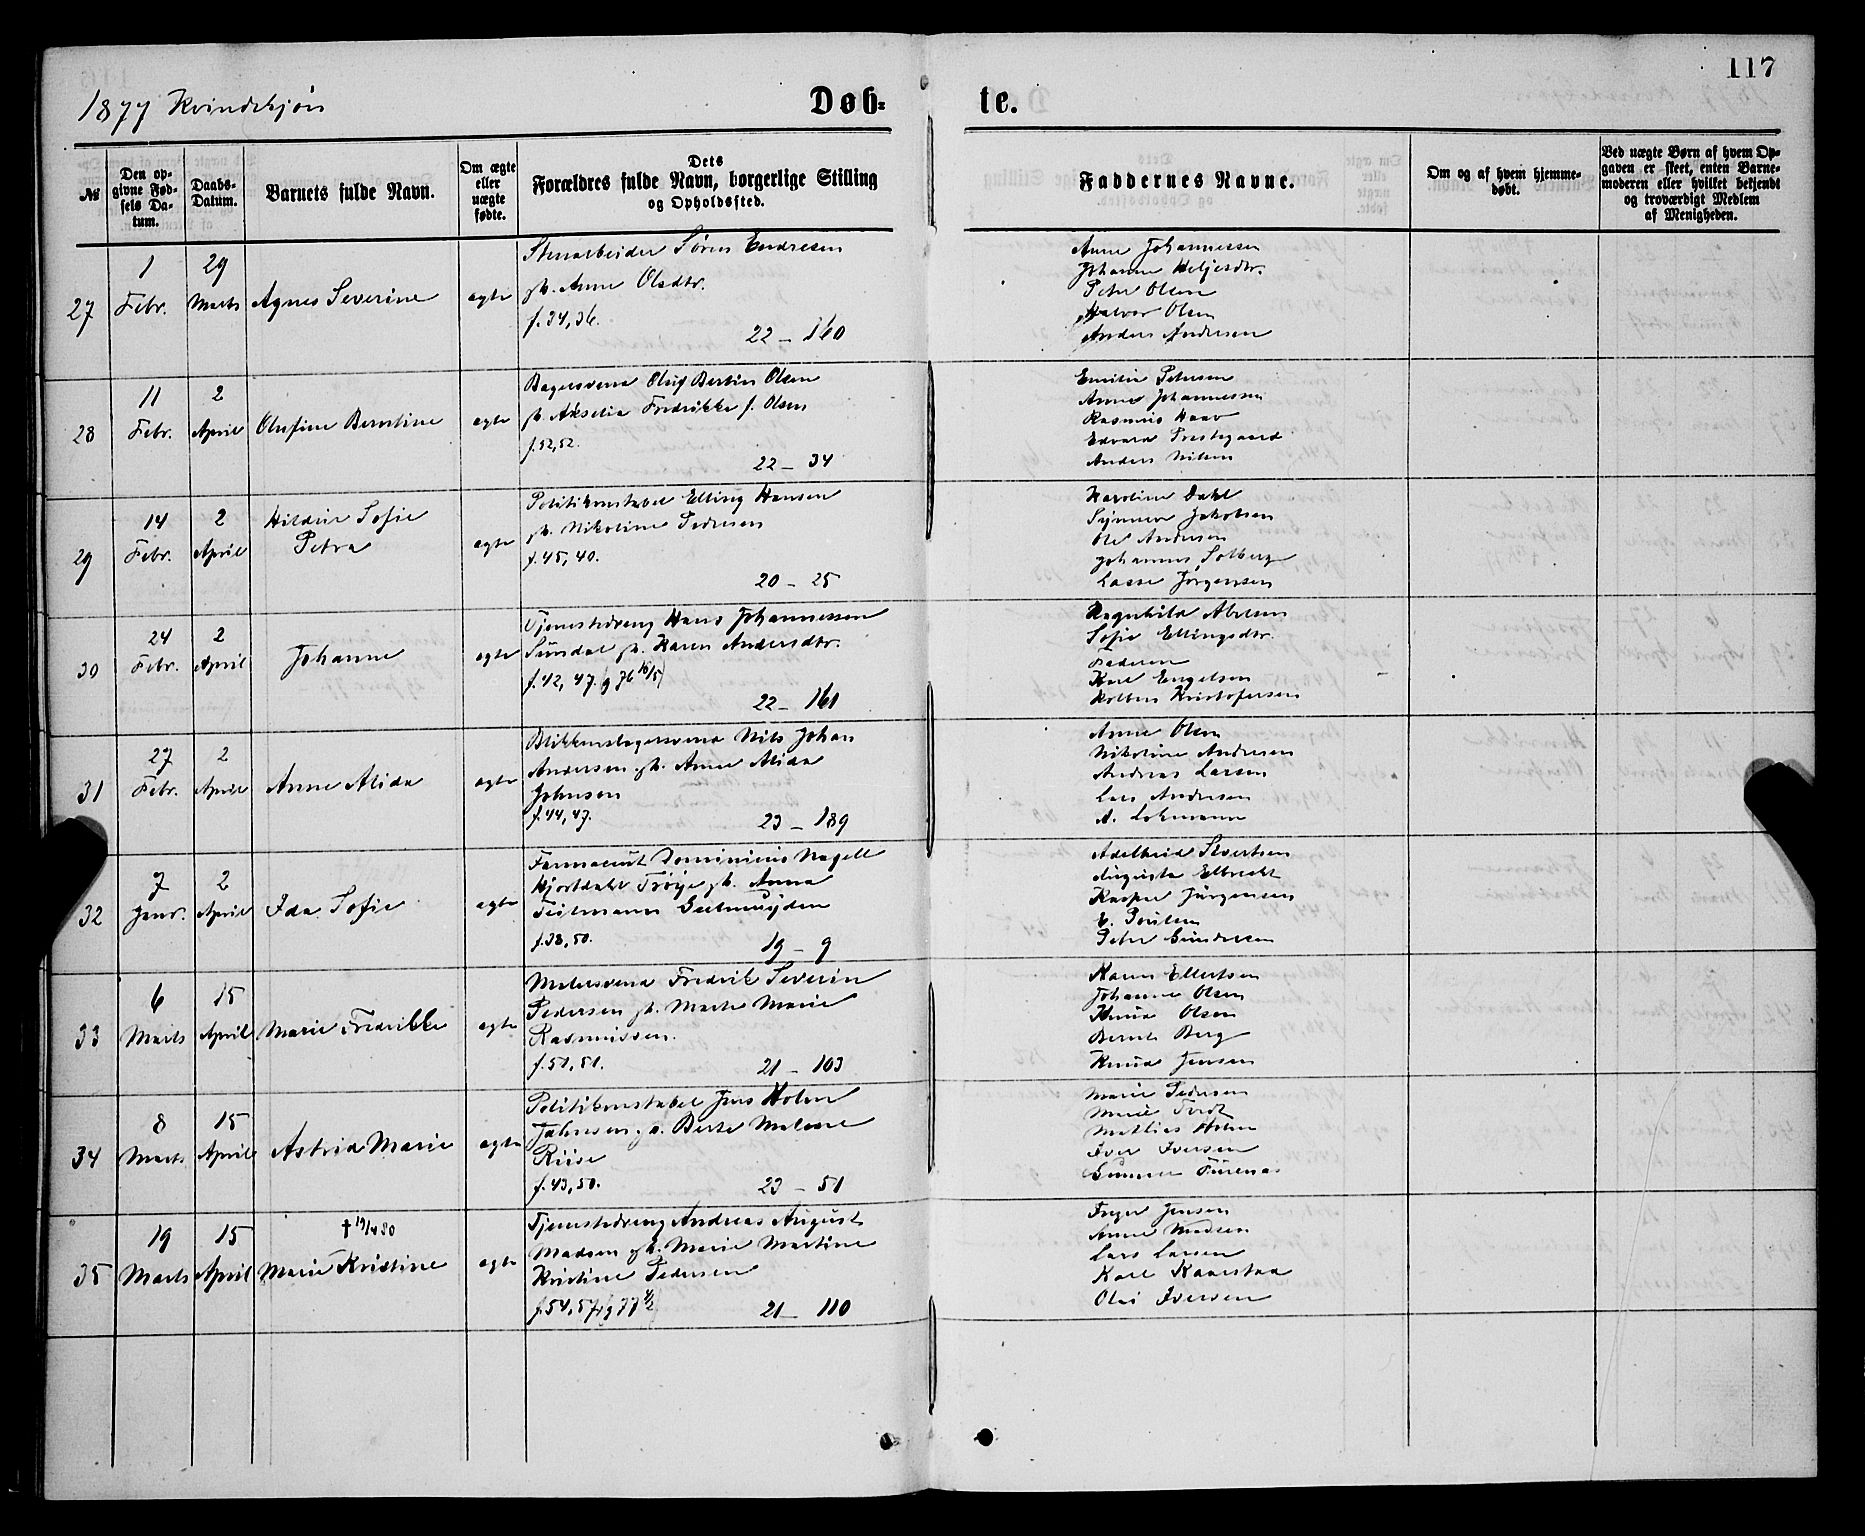 117
1877 Kvindekjøn
Døb-
te.
№
Den op-
givne Fød-
sels Da-
tum.
Daabs-
Datum.
Barnets fulde Navn.
Om ægte
eller
uægte
fødte.
Dets
Forældres fulde Navn, borgerlige Stilling
og Opholdssted.
Faddernes Navne.
Om og af hvem hjemme-
døbt.
Ved uægte Børn af hvem Op-
gaven er skeet, enten Barne-
moderen eller hvilket bekjendt
og troværdigt Medlem
af Menigheden.
27
1
Febr.
29
Marts
Agnes Severine
ægte
Stenarbeider Søren Endresen
gh. Anne Olsdtr.
f. 34, 36.
22 – 160
Anne Johannessen
Johanne Heljesdtr.
Peter Olsen
Halvor Olsen
Anders Andersen
28
11
Febr.
2
April
Olufine Berntine
ægte
Bagersvend Oluf Bertin Olsen
gh. Akselia Fredrikke f. Olsen
f. 52, 52.
22 – 34
Emilie Petersen
Anne Johannessen
Rasmus Haav
Edvard Prestegaard
Anders Nilsen
29
14
Febr.
2
April
Hildur Sofie
Petra
ægte
Politikonstabel Elling Hansen
gh. Nikoline Pedersen
f. 45, 40.
20 – 25
Karoline Dahl
Synneva Jakobsen
Ole Andersen
Johannes Solberg
Lasse Jørgensen
30
24
Febr.
2
April
Johanne
ægte
Tjenestedreng Hans Johannessen
Sundal gh. Karen Andersdtr.
f. 42, 47. (g 76 16/5)
22 – 161
Ragnhild Abelsen
Sofie Ellingsdtr.
Faderen
Karl Engelsen
Kolben Kristofersen
31
27
Febr.
2
April
Anne Alida
ægte
Blikkenslagersvend Nils Johan
Andersen gh. Anne Alida
Johnsen
f. 44, 47.
23 – 189
Anne Olsen
Nikoline Andersen
Andreas Larsen
Lars Andersen
A. Lohmann
32
7
Janr.
2
April
Ida Sofie
ægte
Farmaceut Dominicus Nagell
Hjortdahl Trøye gh. Anna
Geelmuyden
f. 38, 50.
19 – 9
Adelheid Sivertsen
Augusta Elbrecht
Kasper Jürgensen
E. Poulsen
Peter Gundersen
33
6
Marts
15
April
Marie Fredrikke
ægte
Malersvend Fredrik Severin
Pedersen gh. Marte Marie
Rasmussen.
f. 51, 51.
21 – 103
Karen Ellertsen
Johanne Olsen
Knud Olsen
Bernt Berg
Knud Jensen
34
8
Marts
15
April
Astrid Marie
ægte
Politikonstabel Jens Holm
Jahnsen gh. Berte Malene
Riise
f. 43, 50.
23 – 51
Marie Pedersen
Marie
Mathias Holm
Iver Iversen
Gunnar Furenas
35
19
Marts
15
April
† 19/4 80
Marie Kristine
ægte
Tjenestedreng Andreas August
Madsen gh. Marie Martine
Kristine Pedersen
f. 54, 57. (g 77 4/2)
21 – 110
Inger Jensen
Anne Madsen
Lars Larsen
Karl Kaarstad
Olai Iversen